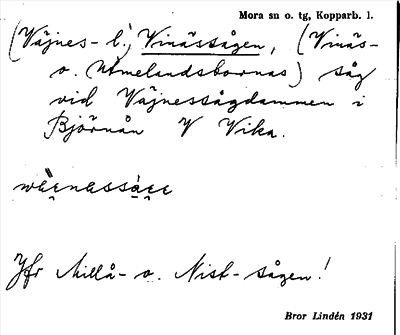 Mora sn o. tg, Kopparb. l.
(Väjnes- l.) Vinässågen, (Vinäs-
o. Utmelandsbornas) såg
vid Väjnessågdammen i
Björnån V Vika.
Jfr Millå- o. Nist-sågen!
Bror Lindén 1931